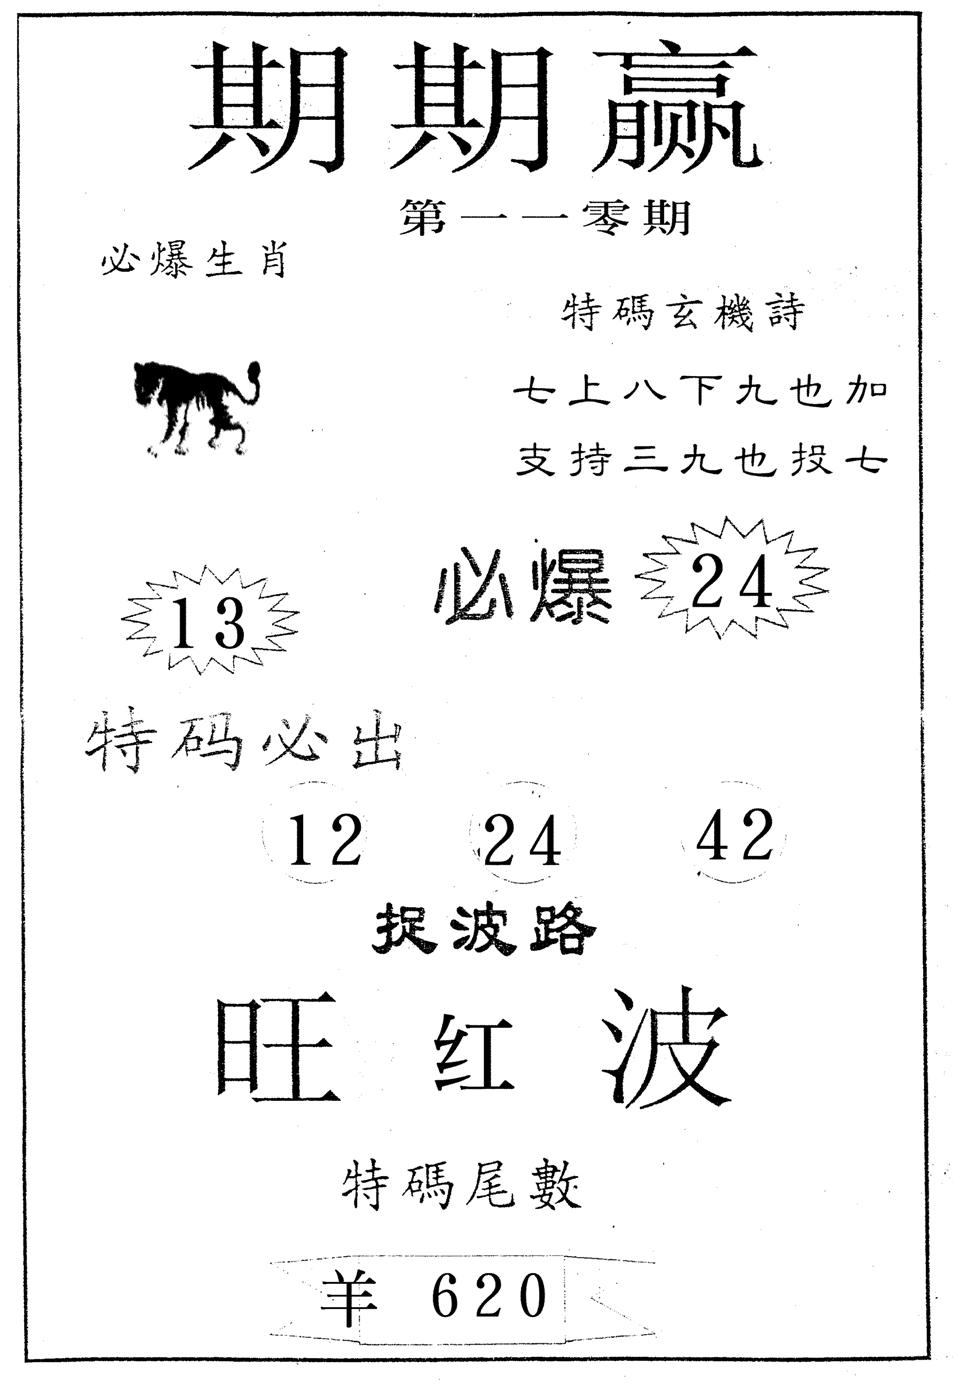 期期赢
第一一零期
必爆生肖
特碼玄機詩
七上八下九也加
支持三九也投七
必爆 24
13
特码必出
12 24 42
捉波路
旺红波
特碼尾數
羊 620